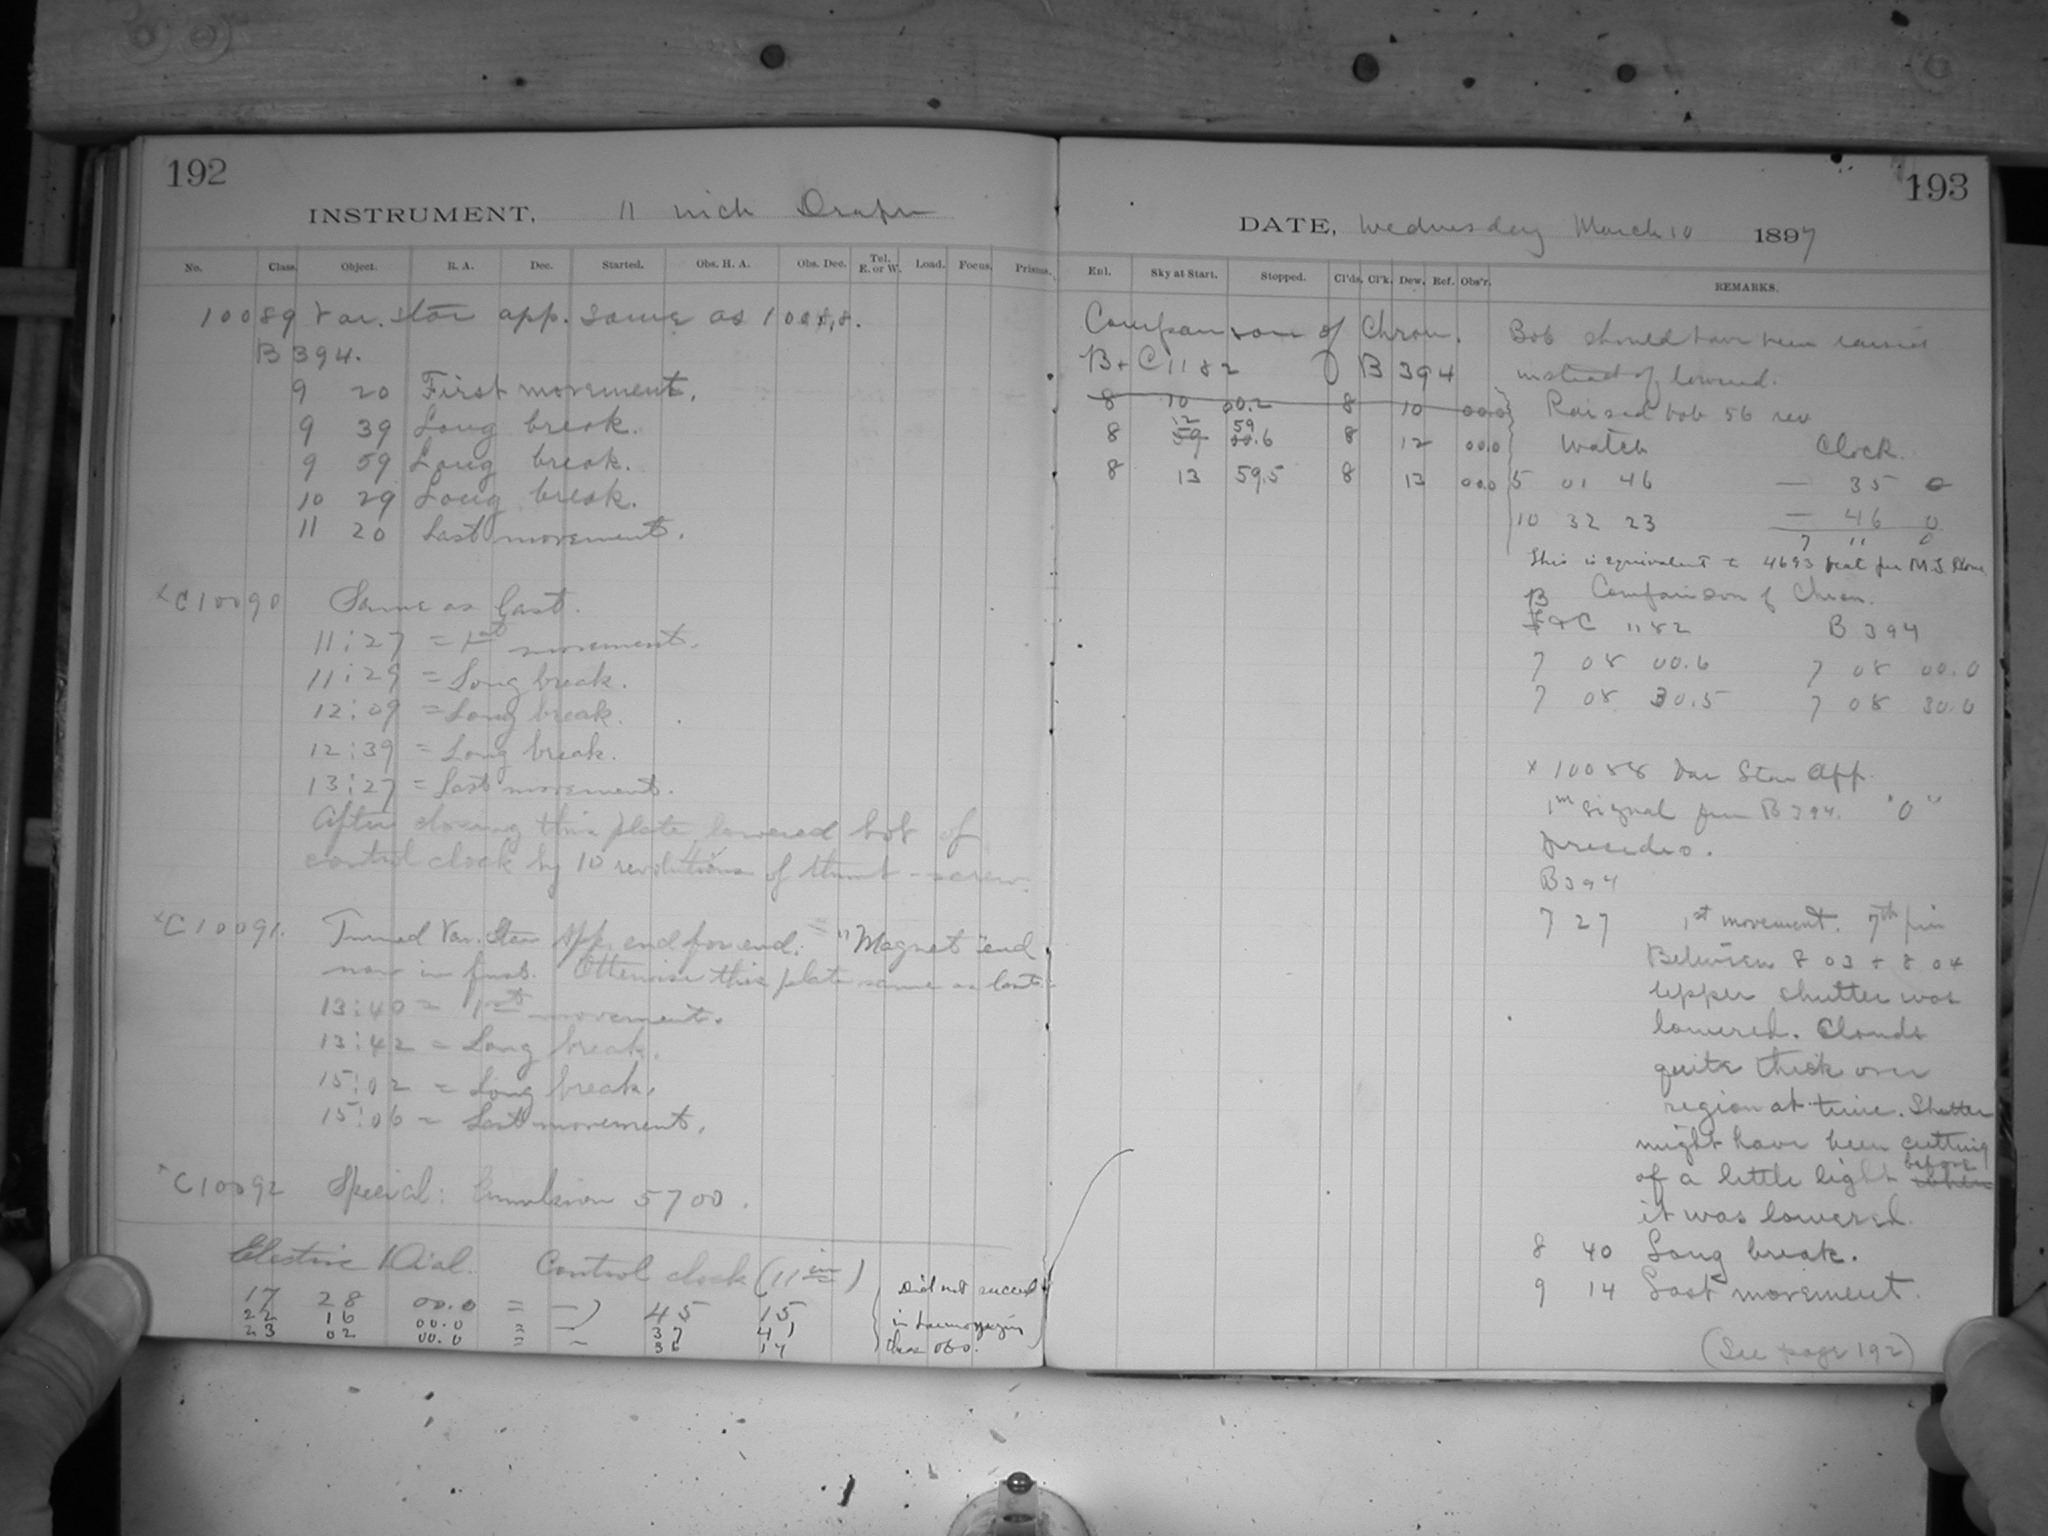 192
INSTRUMENT, 11 inch Draper
No. Class. Object. R. A. Dec. Started. Obs. H. A. Obs. Dec. Tel. E. or W. Load. Focus. Prisms.
10089 Var. Star app. same as 10088.
B 394.
9 20 First movement.
9 39 Long break.
9 59 Long break.
10 29 Long break.
11 20 Last movement.
x C10090 Same as last.
11:27 = 1st movement.
11:29 = Long break.
12:09 = Long break.
12:39 = Long break.
13:27 = Last movement.
After closing this plate, lowered bob of
control clock by 10 revolutions of thumb-screw.
x C10091. Turned Var. Star App. end for end: = "Magnet" end
now in first. Otherwise this plate same as last.
13:40 = 1st movement.
13:42 = Long break.
15:02 = Long break.
15:06 = Last movement.
x C10092 Special: Emulsion 5700.
Electric Dial. Control clock (11 in)
17 28 00.0 = — 45 15
22 16 00.0 = — 37 41
23 02 00.0 = — 36 14
Did not succeed
in
these obs.
193
DATE, Wednesday March 10 1897
Enl. Sky at Start. Stopped. Cl'ds. Cl'k. Dew. Ref. Obs'r. REMARKS.
Comparison of Chron.
B + C 1182 B 394
8 10 00.2 8 10 00.0
8 59 12 00 59.6 8 12 00.0
8 13 59.5 8 13 00.0
Bob should have been raised
instead of lowered.
Raised bob 56 rev
Watch Clock.
5 01 46 — 35 0
10 32 23 — 46 0
7 11 0
This is equivalent to 4693 for M.S.
Comparison of Chron.
B + C 1182 B 394
7 08 00.6 7 08 00.0
7 08 30.5 7 08 30.0
x 10088 Var Star App.
1m signal from B 394. "0"
Presidio.
B394
7 27 1st movement. 7th pin
Between 8 03 + 8 04
upper shutter was
lowered. Clouds
quite thick over
region at time. Shutter
might have been cutting
of a little light before
it was lowered.
8 40 Long break.
9 14 Last movement.
(See page 192)